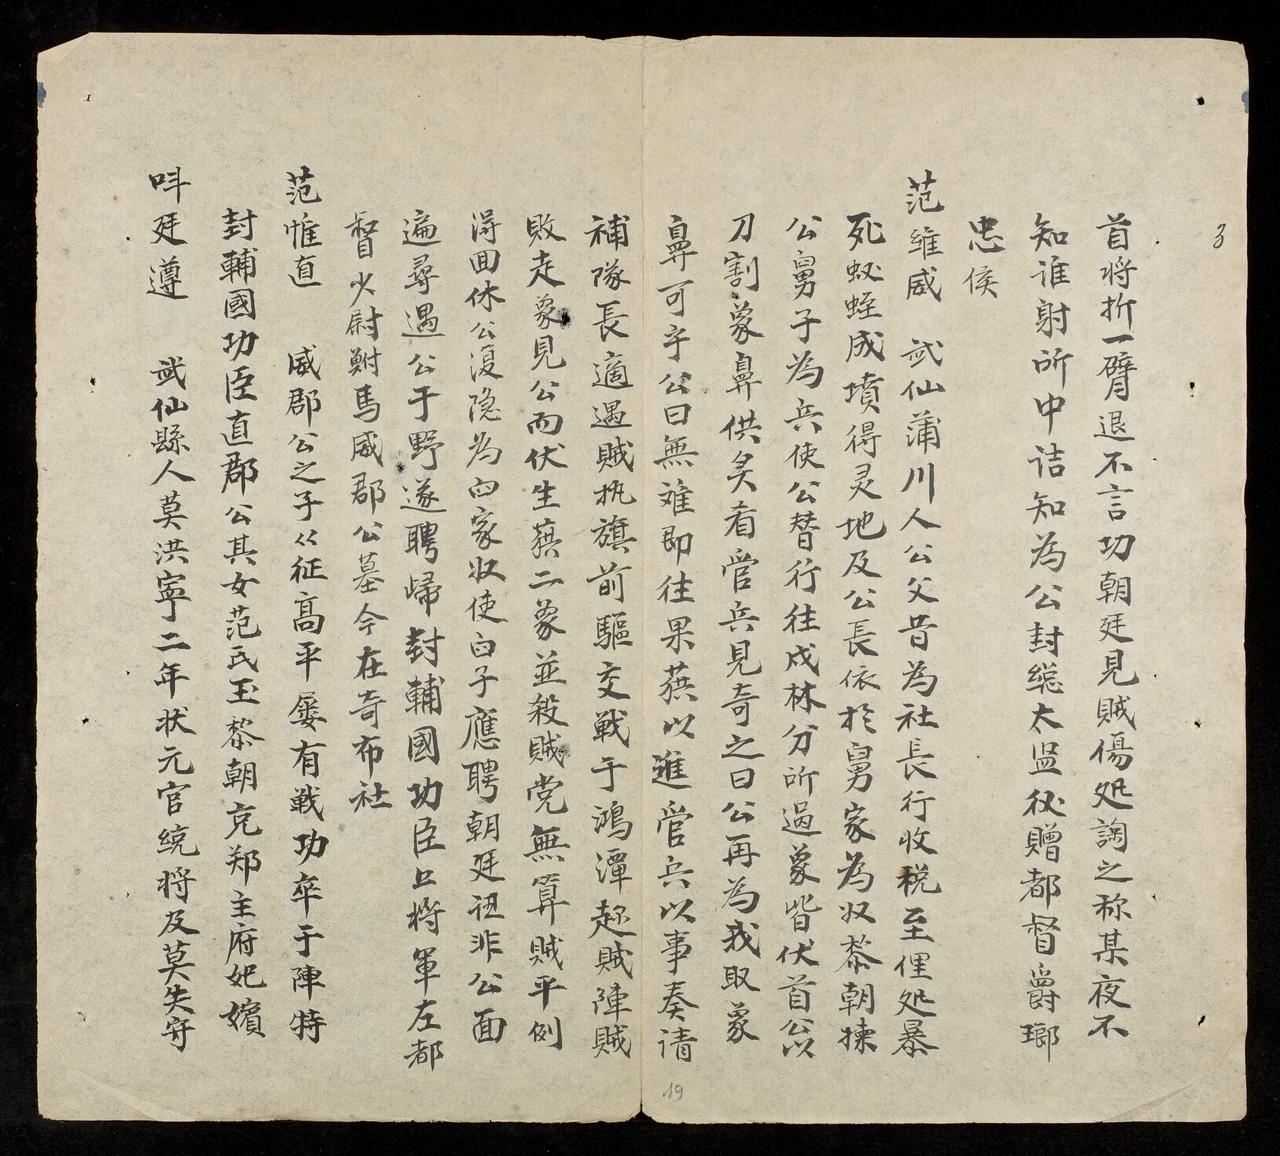 3
首将折一臂退不言功朝廷見賊傷処詢之称某夜不
知誰射所中詰知為公封総太监後贈都督爵瑯
忠侯
范維威 武仙蒲川人公父昔為社長行收税至俚処暴
死蚁蛭成墳得灵地及公長依於舅家為奴黎朝揀
公舅子為兵使公替行往戍林分所過象皆伏首公以
刀割象鼻供炙看管兵見奇之曰公再為我取象
鼻可乎公曰無难即往果獲以進管兵以事奏请
補隊長適遇賊执旗前驅交戦于鴻潭趂賊陣賊
敗走象見公而伏生獲二象並殺賊党無算賊平例
得回休公復隐為白家奴使白子應聘朝廷詎非公面
遍尋遇公于野遂聘歸封輔國功臣上將軍左都
督少尉駙馬威郡公墓今在奇布社
范惟直 威郡公之子从征高平屡有戦功卒于陣特
封輔國功臣直郡公其女范氏玉黎朝充郑主府妃嬪
呌廷遵 武仙縣人莫洪寧二年状元官統将及莫失守
19